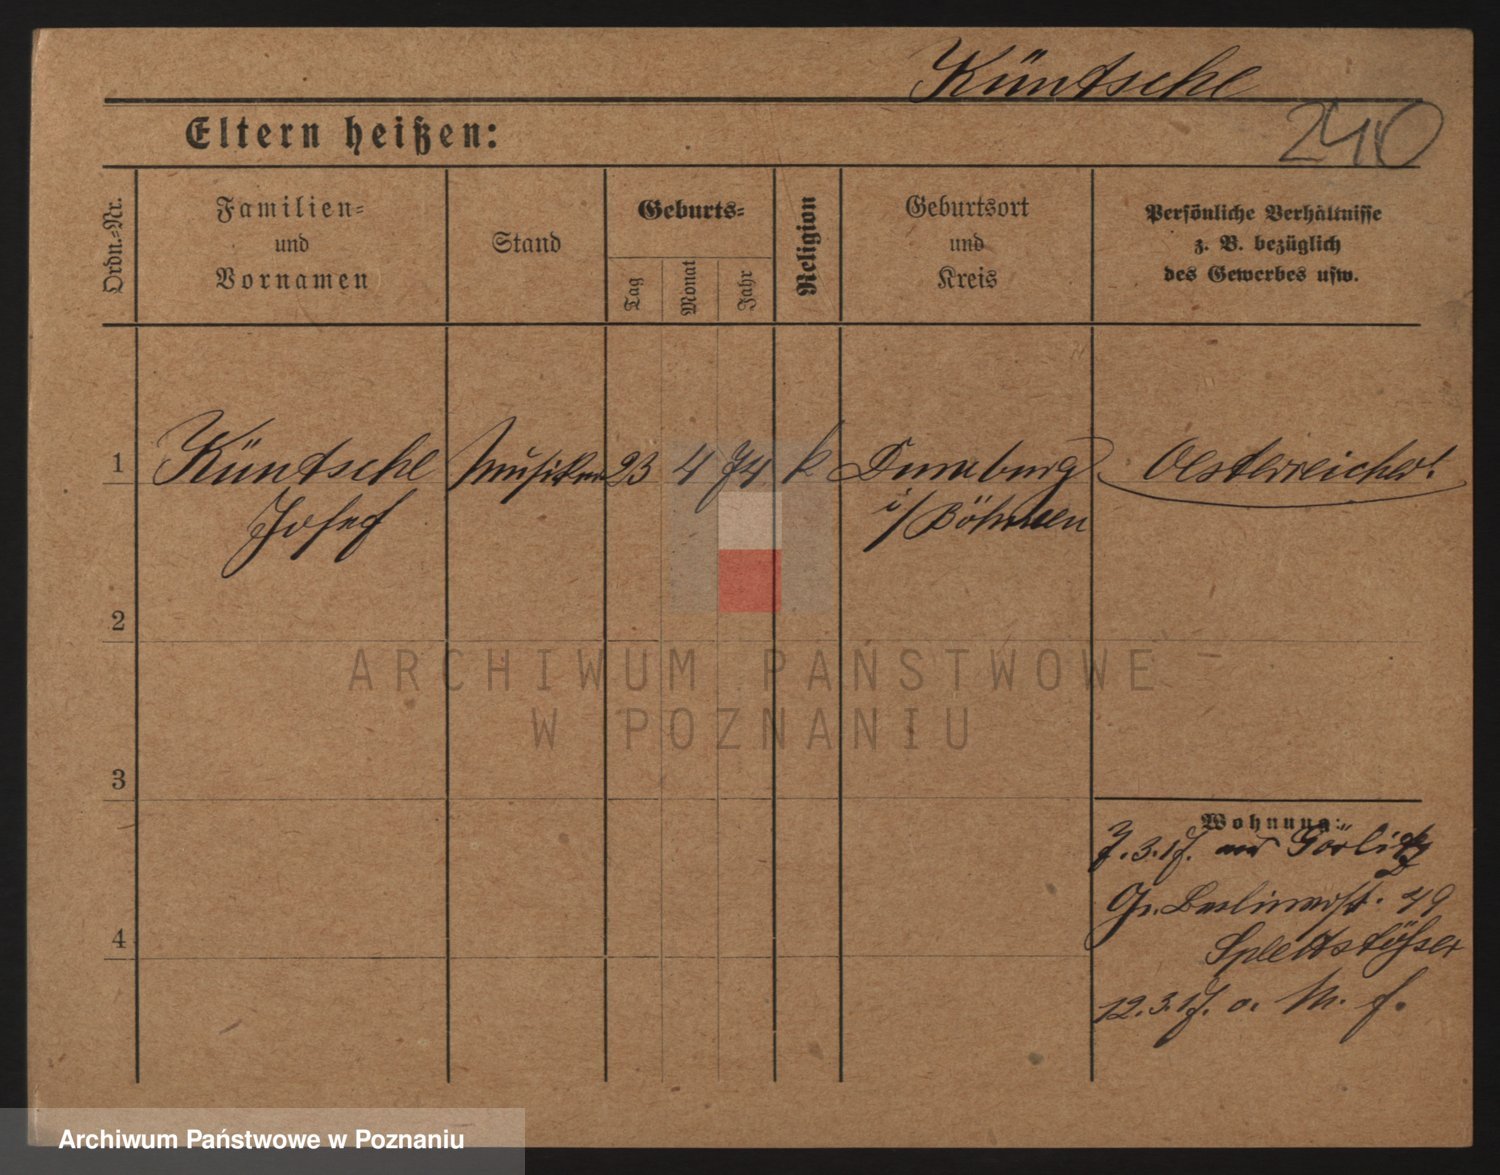 Küntsche
240
Eltern heißen:
Ordn.-Nr.
Familien-
und
Vornamen
Stand
Geburts-
Tag
Monat
Jahr
Religion
Geburtsort
und
Kreis
Persönliche Verhältnisse
z. B. bezüglich
des Gewerbes usw.
1 Küntsche Musiker 23 4 74 k Oesterreicher!
Josef i/Böhmen
2
3
4
Wohnung:
7.3.17. Görlitz
Gr. Berlinerst. 49
Splettstößer
12.3.17. o. M. f.
ARCHIWUM PAŃSTWOWE
W POZNANIU
Archiwum Państwowe w Poznaniu